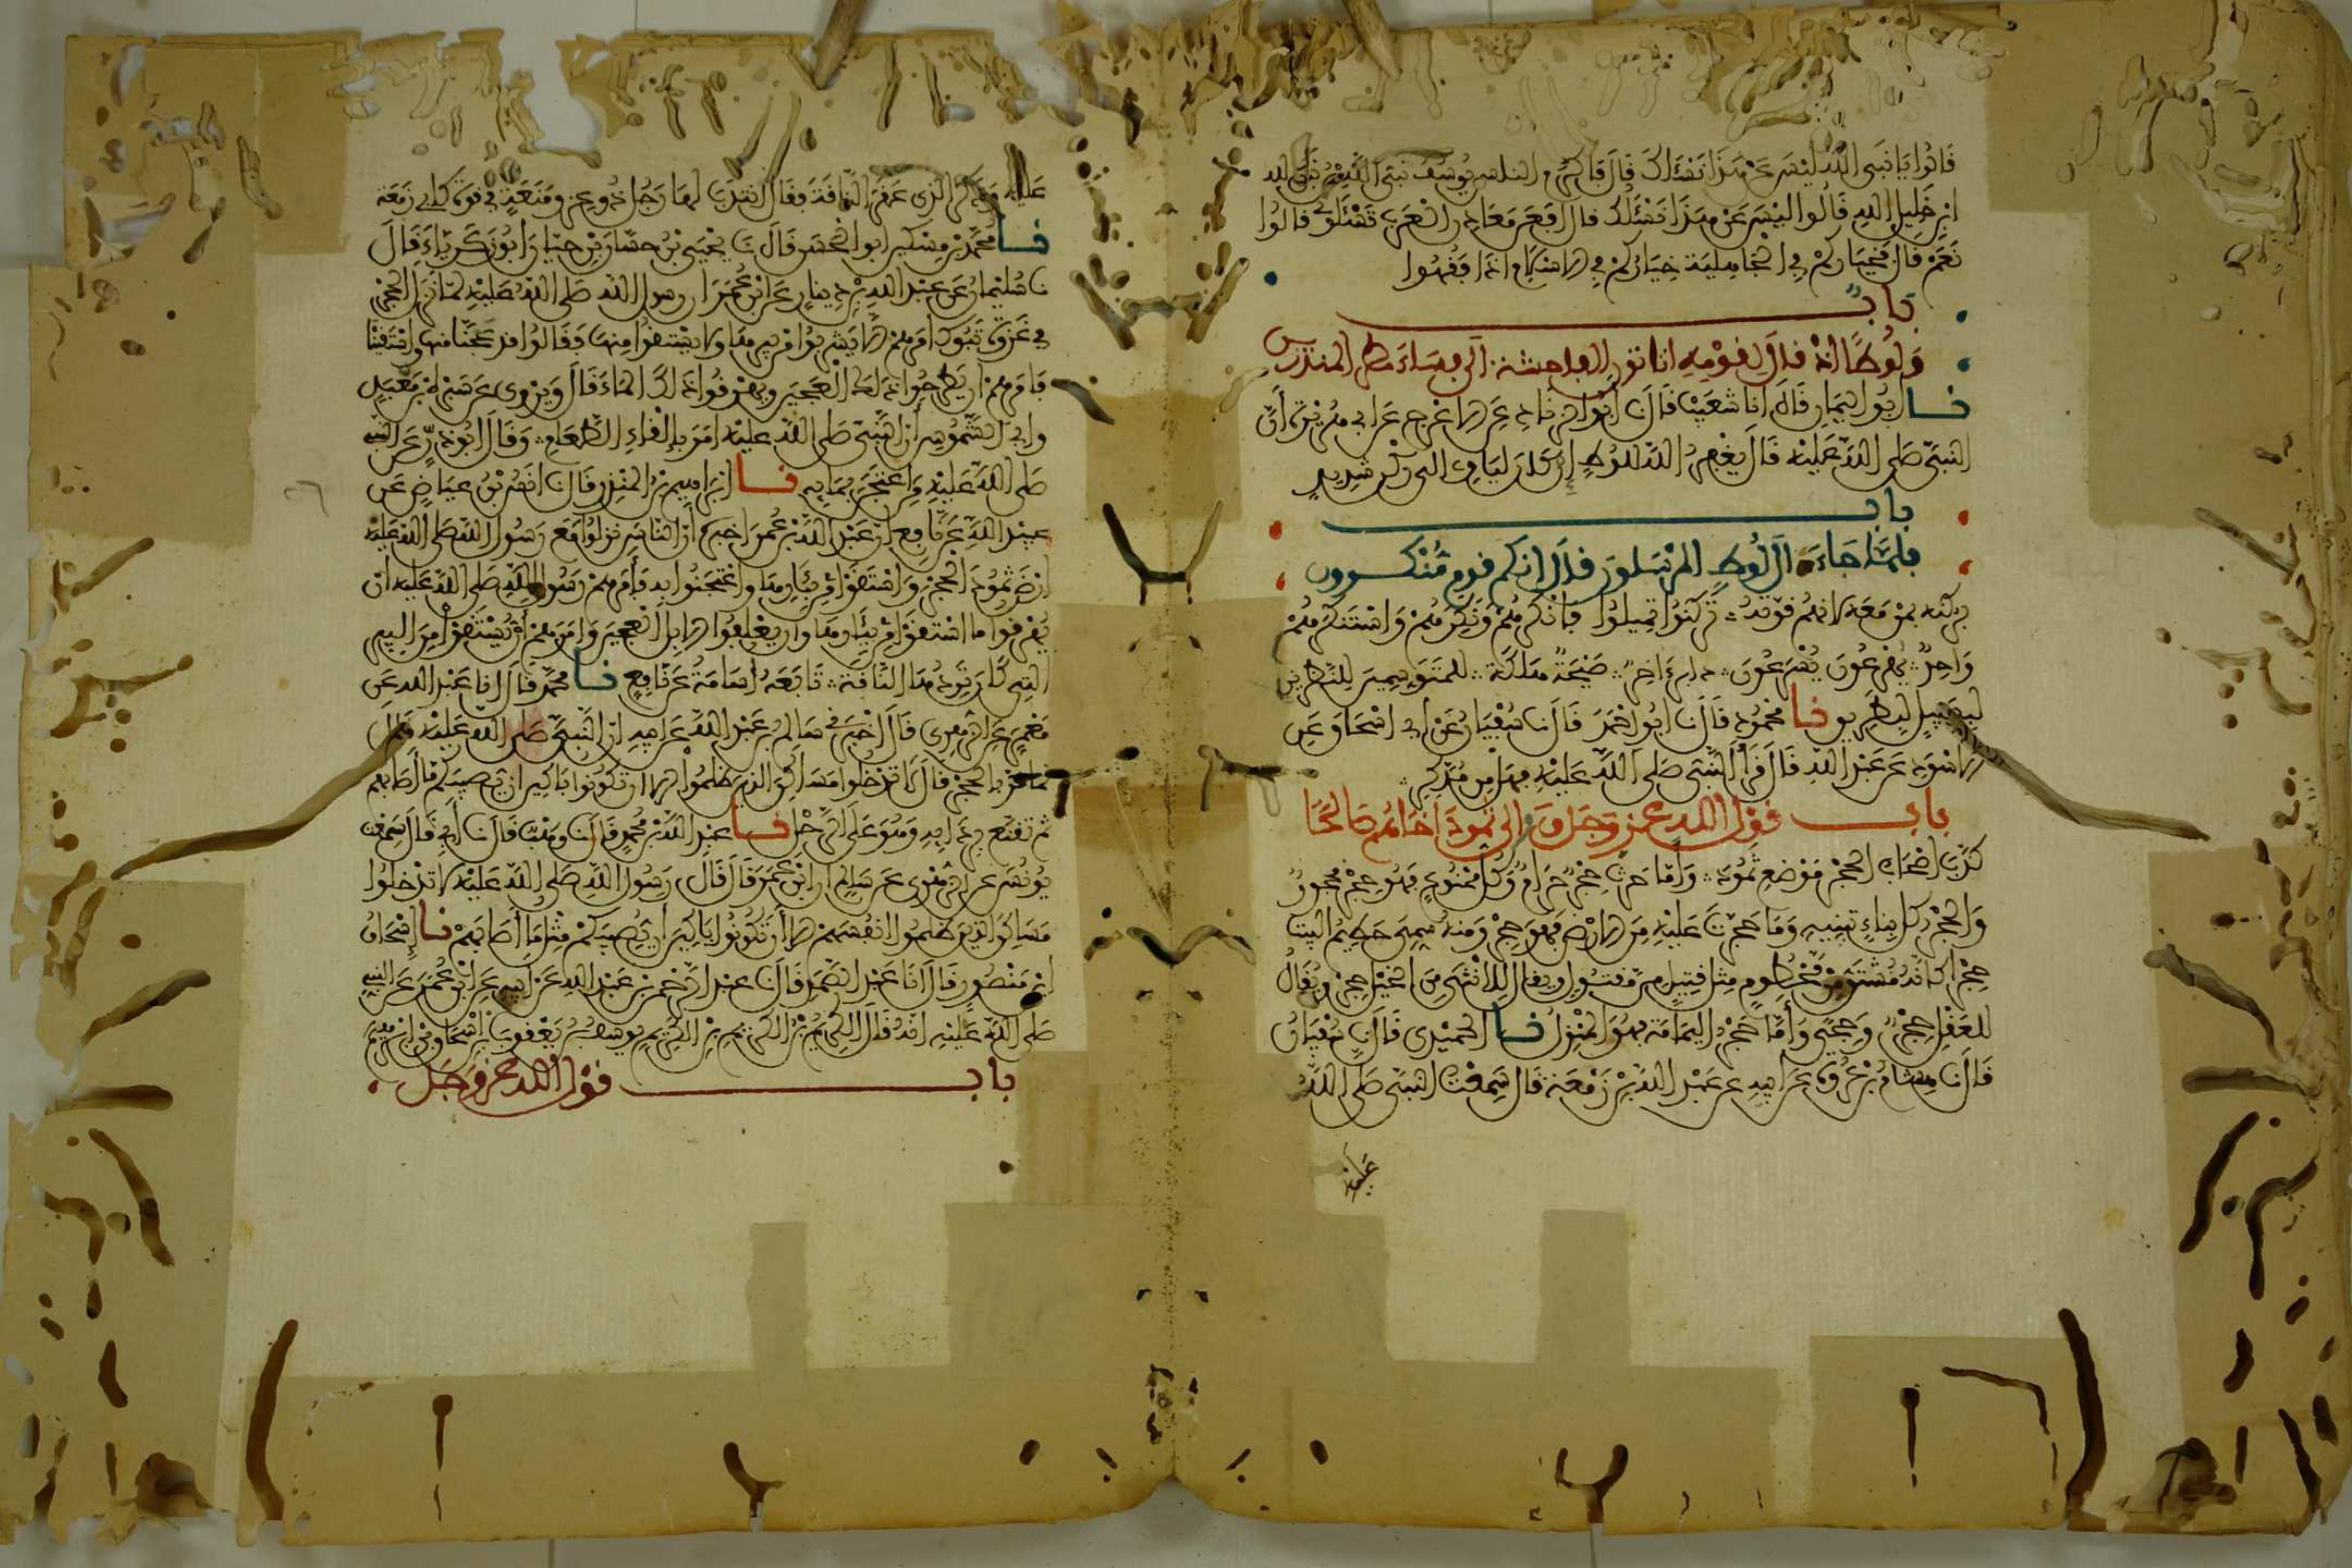 قالوا يا نبي الله ليس عن هذا نسئلك قال فاكرم الناس يوسف نبي الله بن نبي الله
ابن خليل الله قالوا ليس عن هذا نسئلك قال افعن معادن العرب تسئلوني قالوا
نعم قال فخياركم في الجاهلية خياركم في الاسلام اذا فقهوا
باب
ولوطا اذ قال لقومه اتاتون الفاحشة الى فساء مطر المنذرين
نا ابو اليمان قال انا شعيب قال نا ابو الزناد عن الاعرج عن ابي هريرة ان
النبي صلى الله عليه قال يغفر الله للوط ان كان لياوي الى ركن شديد
باب
فلما جاء ال لوط المرسلون قال انكم قوم منكرون
بركنه بمن معه لانهم قوته تركنوا تميلوا فانكرهم ونكرهم واستنكرهم
واحد يهرعون يسرعون دابر اخر صيحة هلكة للمتوسمين للناظرين
لبسبيل لبطريق نا محمود قال نا ابو احمد قال نا سفيان عن ابي اسحاق عن
الاسود عن عبد الله قال قرا النبي صلى الله عليه فهل من مدكر
باب قول الله عز وجل والى ثمود اخاهم صالحا
كذب اصحاب الحجر موضع ثمود واما حرث حجر حرام وكل ممنوع فهو حجر محجور
والحجر كل بناء تبنيه وما حجرت عليه من الارض فهو حجر ومنه سمي حطيم البيت
حجرا كانه مشتق من محطوم مثل قتيل من مقتول ويقال للانثى من الخيل حجر ويقال
للعقل حجر وحجى واما حجر اليمامة فهو المنزل نا الحميدي قال نا سفيان
قال نا هشام بن عروة عن ابيه عن عبد الله بن زمعة قال سمعت النبي صلى الله
عليه
عليه وذكر الذي عقر الناقة فقال انتدب لها رجل ذو عز ومنعة في قوة كابي زمعة
نا محمد بن مسكين ابو الحسن قال نا يحيى بن حسان بن حيان ابو زكرياء قال
نا سليمان عن عبد الله بن دينار عن ابن عمر ان رسول الله صلى الله عليه لما نزل الحجر
في غزوة تبوك امرهم الا يشربوا من بيرها ولا يستقوا منها فقالوا قد عجنا منها واستقينا
فامرهم ان يطرحوا ذلك العجين ويهرقوا ذلك الماء قال ويروى عن سبرة بن معبد
وابي الشموس ان النبي صلى الله عليه امر بإلقاء الطعام وقال ابو ذر عن النبي
صلى الله عليه من اعتجن بمايه نا ابراهيم بن المنذر قال نا انس بن عياض عن
عبيد الله عن نافع ان عبد الله بن عمر اخبره ان الناس نزلوا مع رسول الله صلى الله عليه
ارض ثمود الحجر واستقوا من بئارها واعتجنوا به فامرهم رسول الله صلى الله عليه ان
يهرقوا ما استقوا من بئارها وان يعلفوا الابل العجين وامرهم ان يستقوا من البير
التي كان تردها الناقة تابعه اسامة عن نافع نا محمد قال انا عبد الله عن
معمر عن الزهري قال اخبرني سالم بن عبد الله عن ابيه ان النبي صلى الله عليه قال
لما مر بالحجر قال لا تدخلوا مساكن الذين ظلموا الا ان تكونوا باكين ان يصيبكم ما اصابهم
ثم تقنع بردايه وهو على الرحل نا عبد الله بن محمد قال نا وهب قال نا ابي قال سمعت
يونس عن الزهري عن سالم ان ابن عمر قال قال رسول الله صلى الله عليه لا تدخلوا
مساكن الذين ظلموا انفسهم الا ان تكونوا باكين ان يصيبكم مثل ما اصابهم نا إسحاق
ابن منصور قال انا عبد الصمد قال نا عبد الرحمن بن عبد الله عن ابيه عن ابن عمر عن النبي
صلى الله عليه انه قال الكريم بن الكريم بن الكريم يوسف بن يعقوب بن اسحاق بن ابراهيم
باب قول الله عز وجل